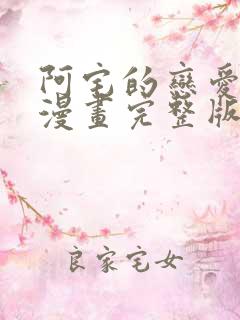 阿宅的戀愛
漫畫完整版
良家宅女